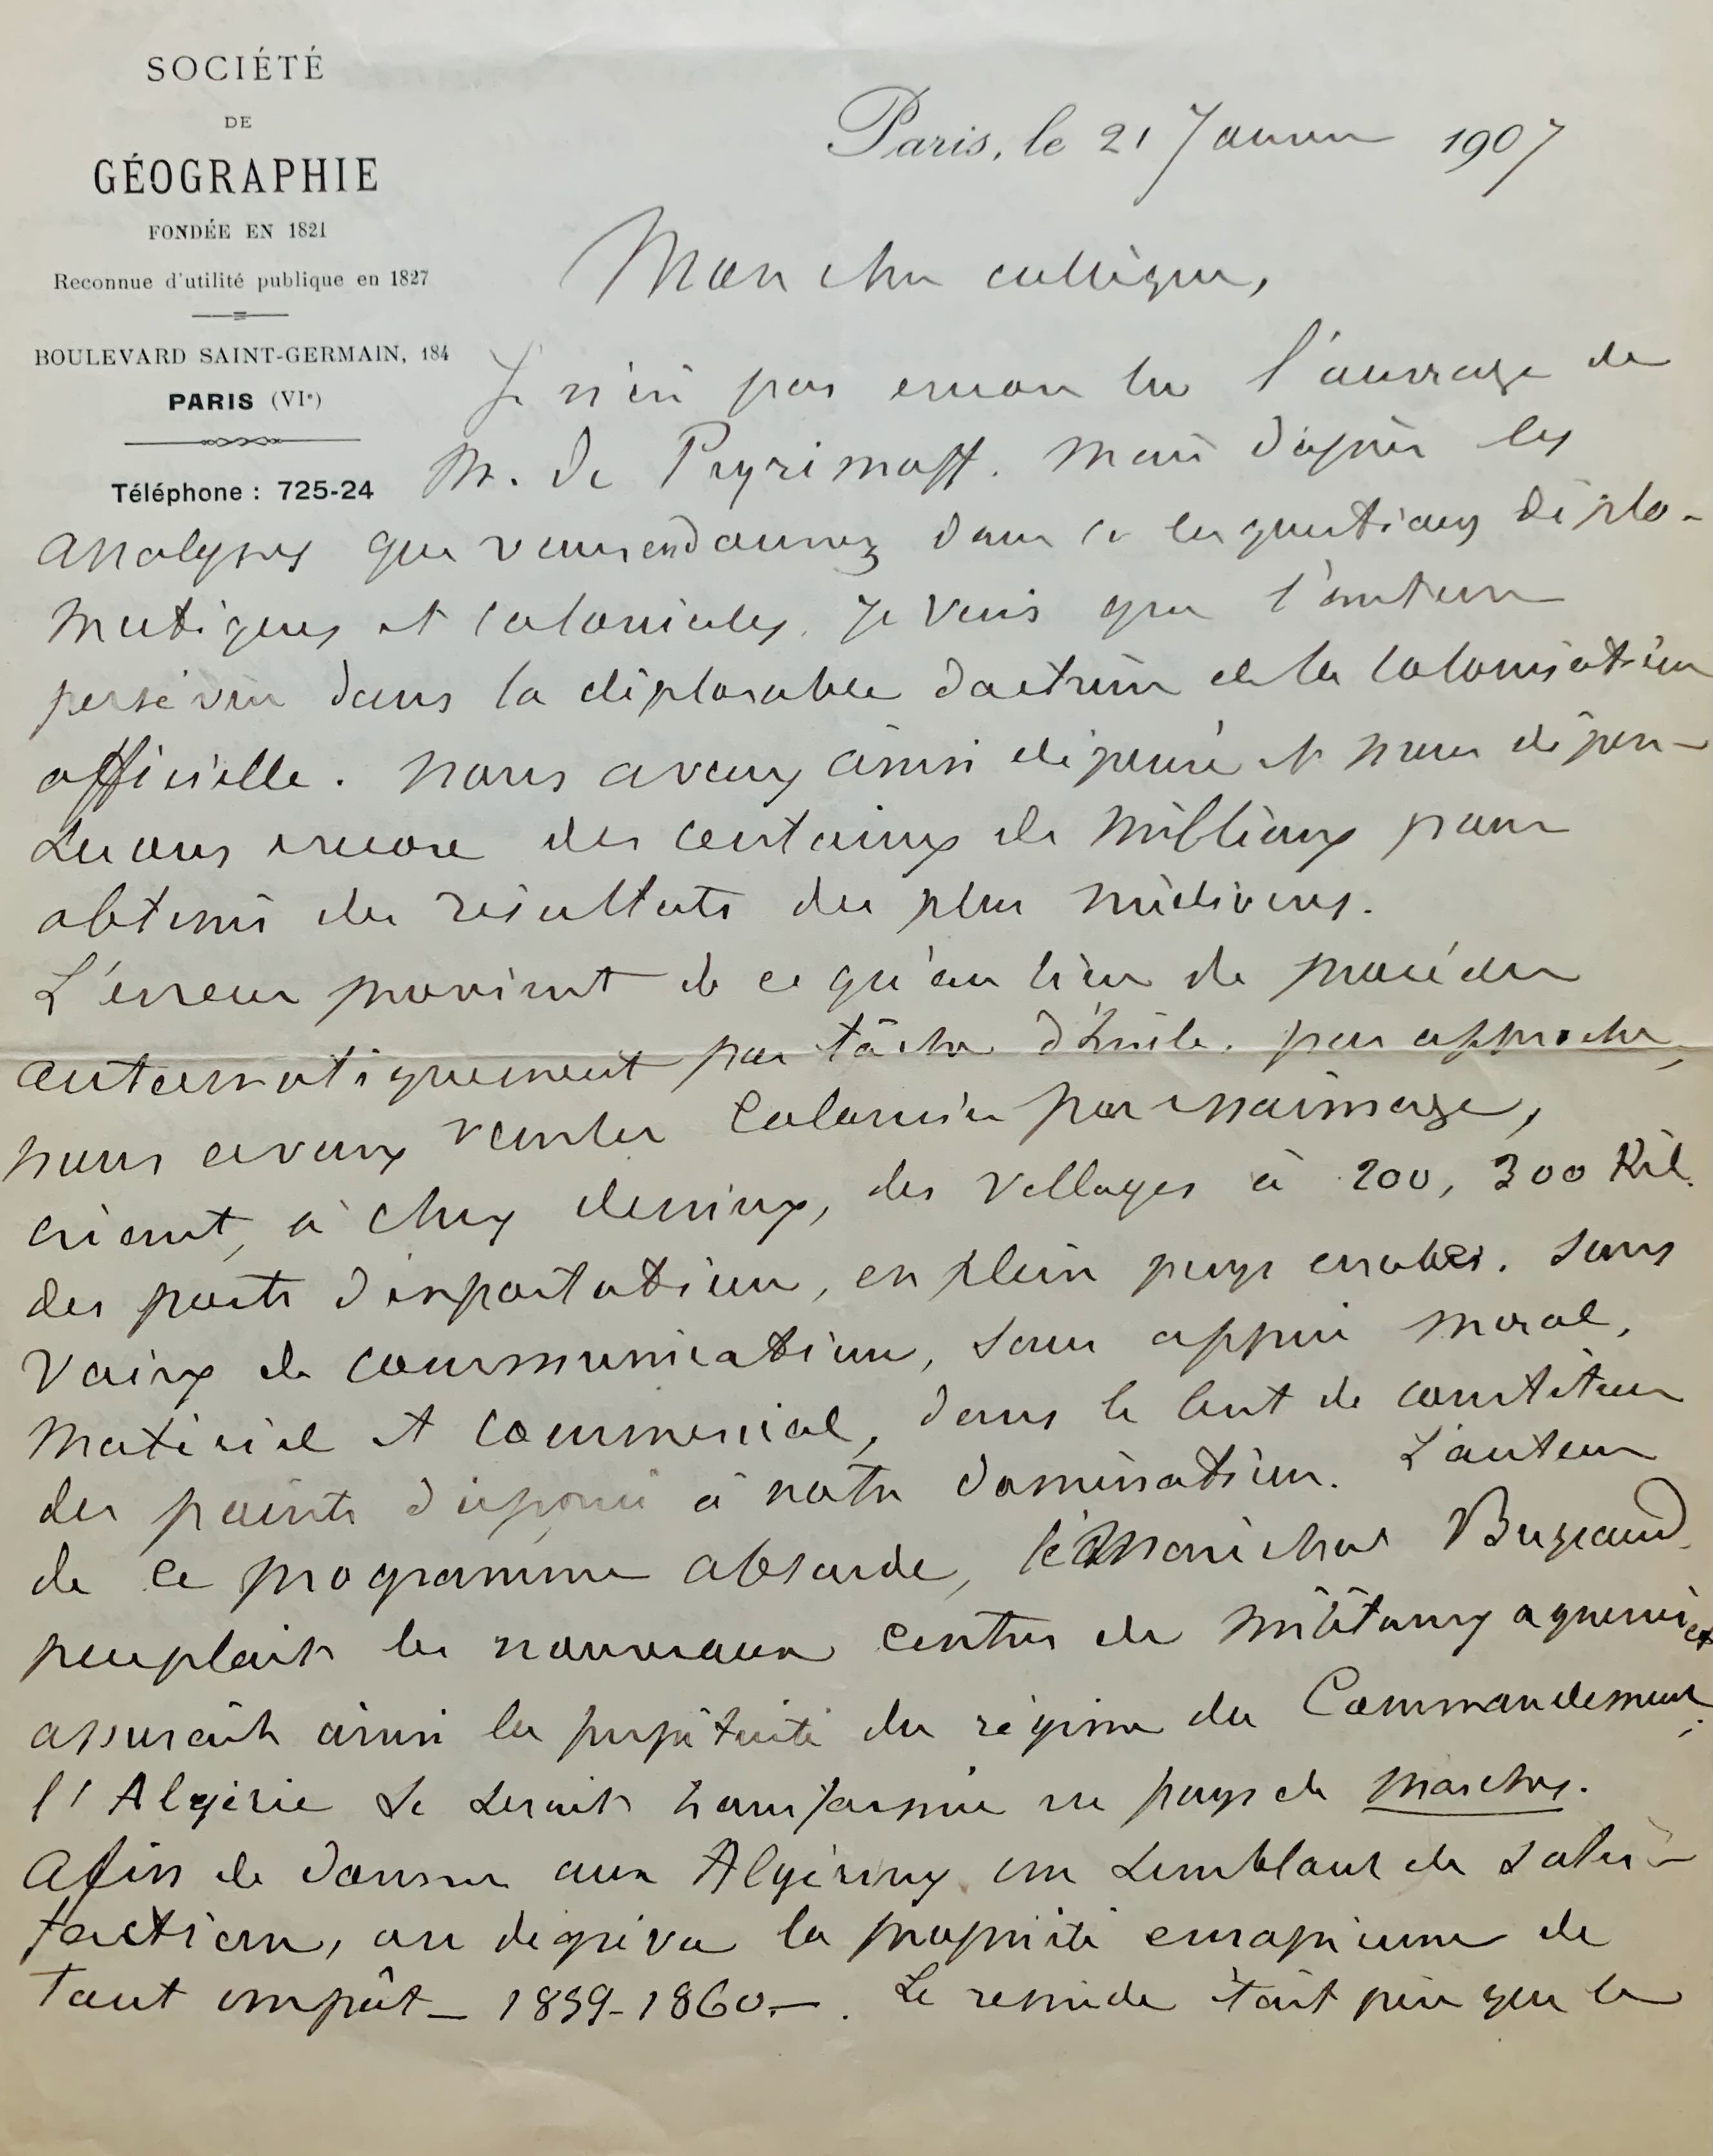 SOCIÉTÉ
DE
GÉOGRAPHIE
FONDÉE EN 1821
Reconnue d'utilité publique en 1827
BOULEVARD SAINT-GERMAIN, 184
PARIS (VIe)
Téléphone : 725-24
Paris, le 21 Janvier 1907
Mon cher collègue,
Je n'ai pas encore lu l'ouvrage de
M. de Peyrimoff. Mais d'après les
analyses que vous en donnez dans les questions diplo-
matiques et coloniales, je vois que l'auteur
persévère dans la déplorable doctrine de la colonisation
officielle. Nous avons ainsi dépensé et nous dépen-
serons encore des centaines de millions pour
obtenir des résultats des plus médiocres.
L'erreur provient de ce qu'au lieu de procéder
automatiquement par tâche d'huile, par approche,
nous avons voulu coloniser par essaimage,
créant, à chers deniers, des villages à 200, 300 Kil.
des ports d'importation, en plein pays arabes. Sans
voies de communication, sans appui moral,
matériel et commercial, dans le but de constituer
des points d'appui à notre domination. L'auteur
de ce programme absurde, le Maréchal Bugeaud
peuplait les nouveaux centres de militaires aguerris et
assurait ainsi la perpétuité du régime du Commandement,
l'Algérie se serait transformée en pays de Marches.
Afin de donner aux Algériens un semblant de satis-
faction, on dégreva la propriété européenne de
tout impôt – 1859-1860 –. Le remède était pire que le